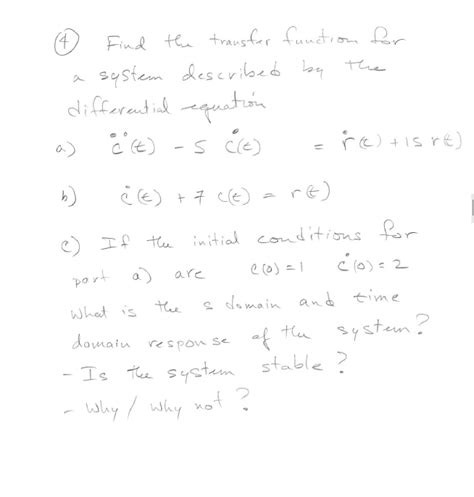 ④ Find the transfer function for
a system described by the
differential equation
a.) c̈(t) - 5 ċ(t) = ṙ(t) + 15 r(t)
b) ċ(t) + 7 c(t) = r(t)
c) If the initial conditions for
part a) are c(0) = 1 ċ(0) = 2
what is the s domain and time
domain response of the system?
- Is the system stable?
- Why / Why not?